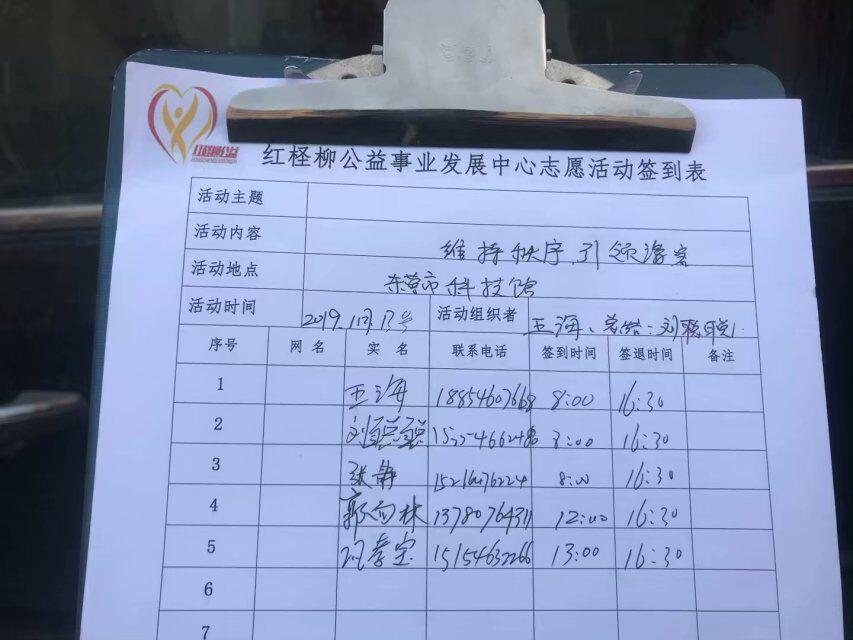 红柽柳公益
红柽柳公益事业发展中心志愿活动签到表
活动主题
活动内容 维持秩序,引领游客
活动地点 东营市科技馆
活动时间 2019. 13号 活动组织者 王海、总结:刘聪聪
序号 网名 实名 联系电话 签到时间 签退时间 备注
1 王海 18854607668 8:00 16:30
2 刘聪聪 8:00 16:30
3 张静 8:00 16:30
4 郭向林 13780764311 12:00 16:30
5 孝宝 15154632266 13:00 16:30
6
7